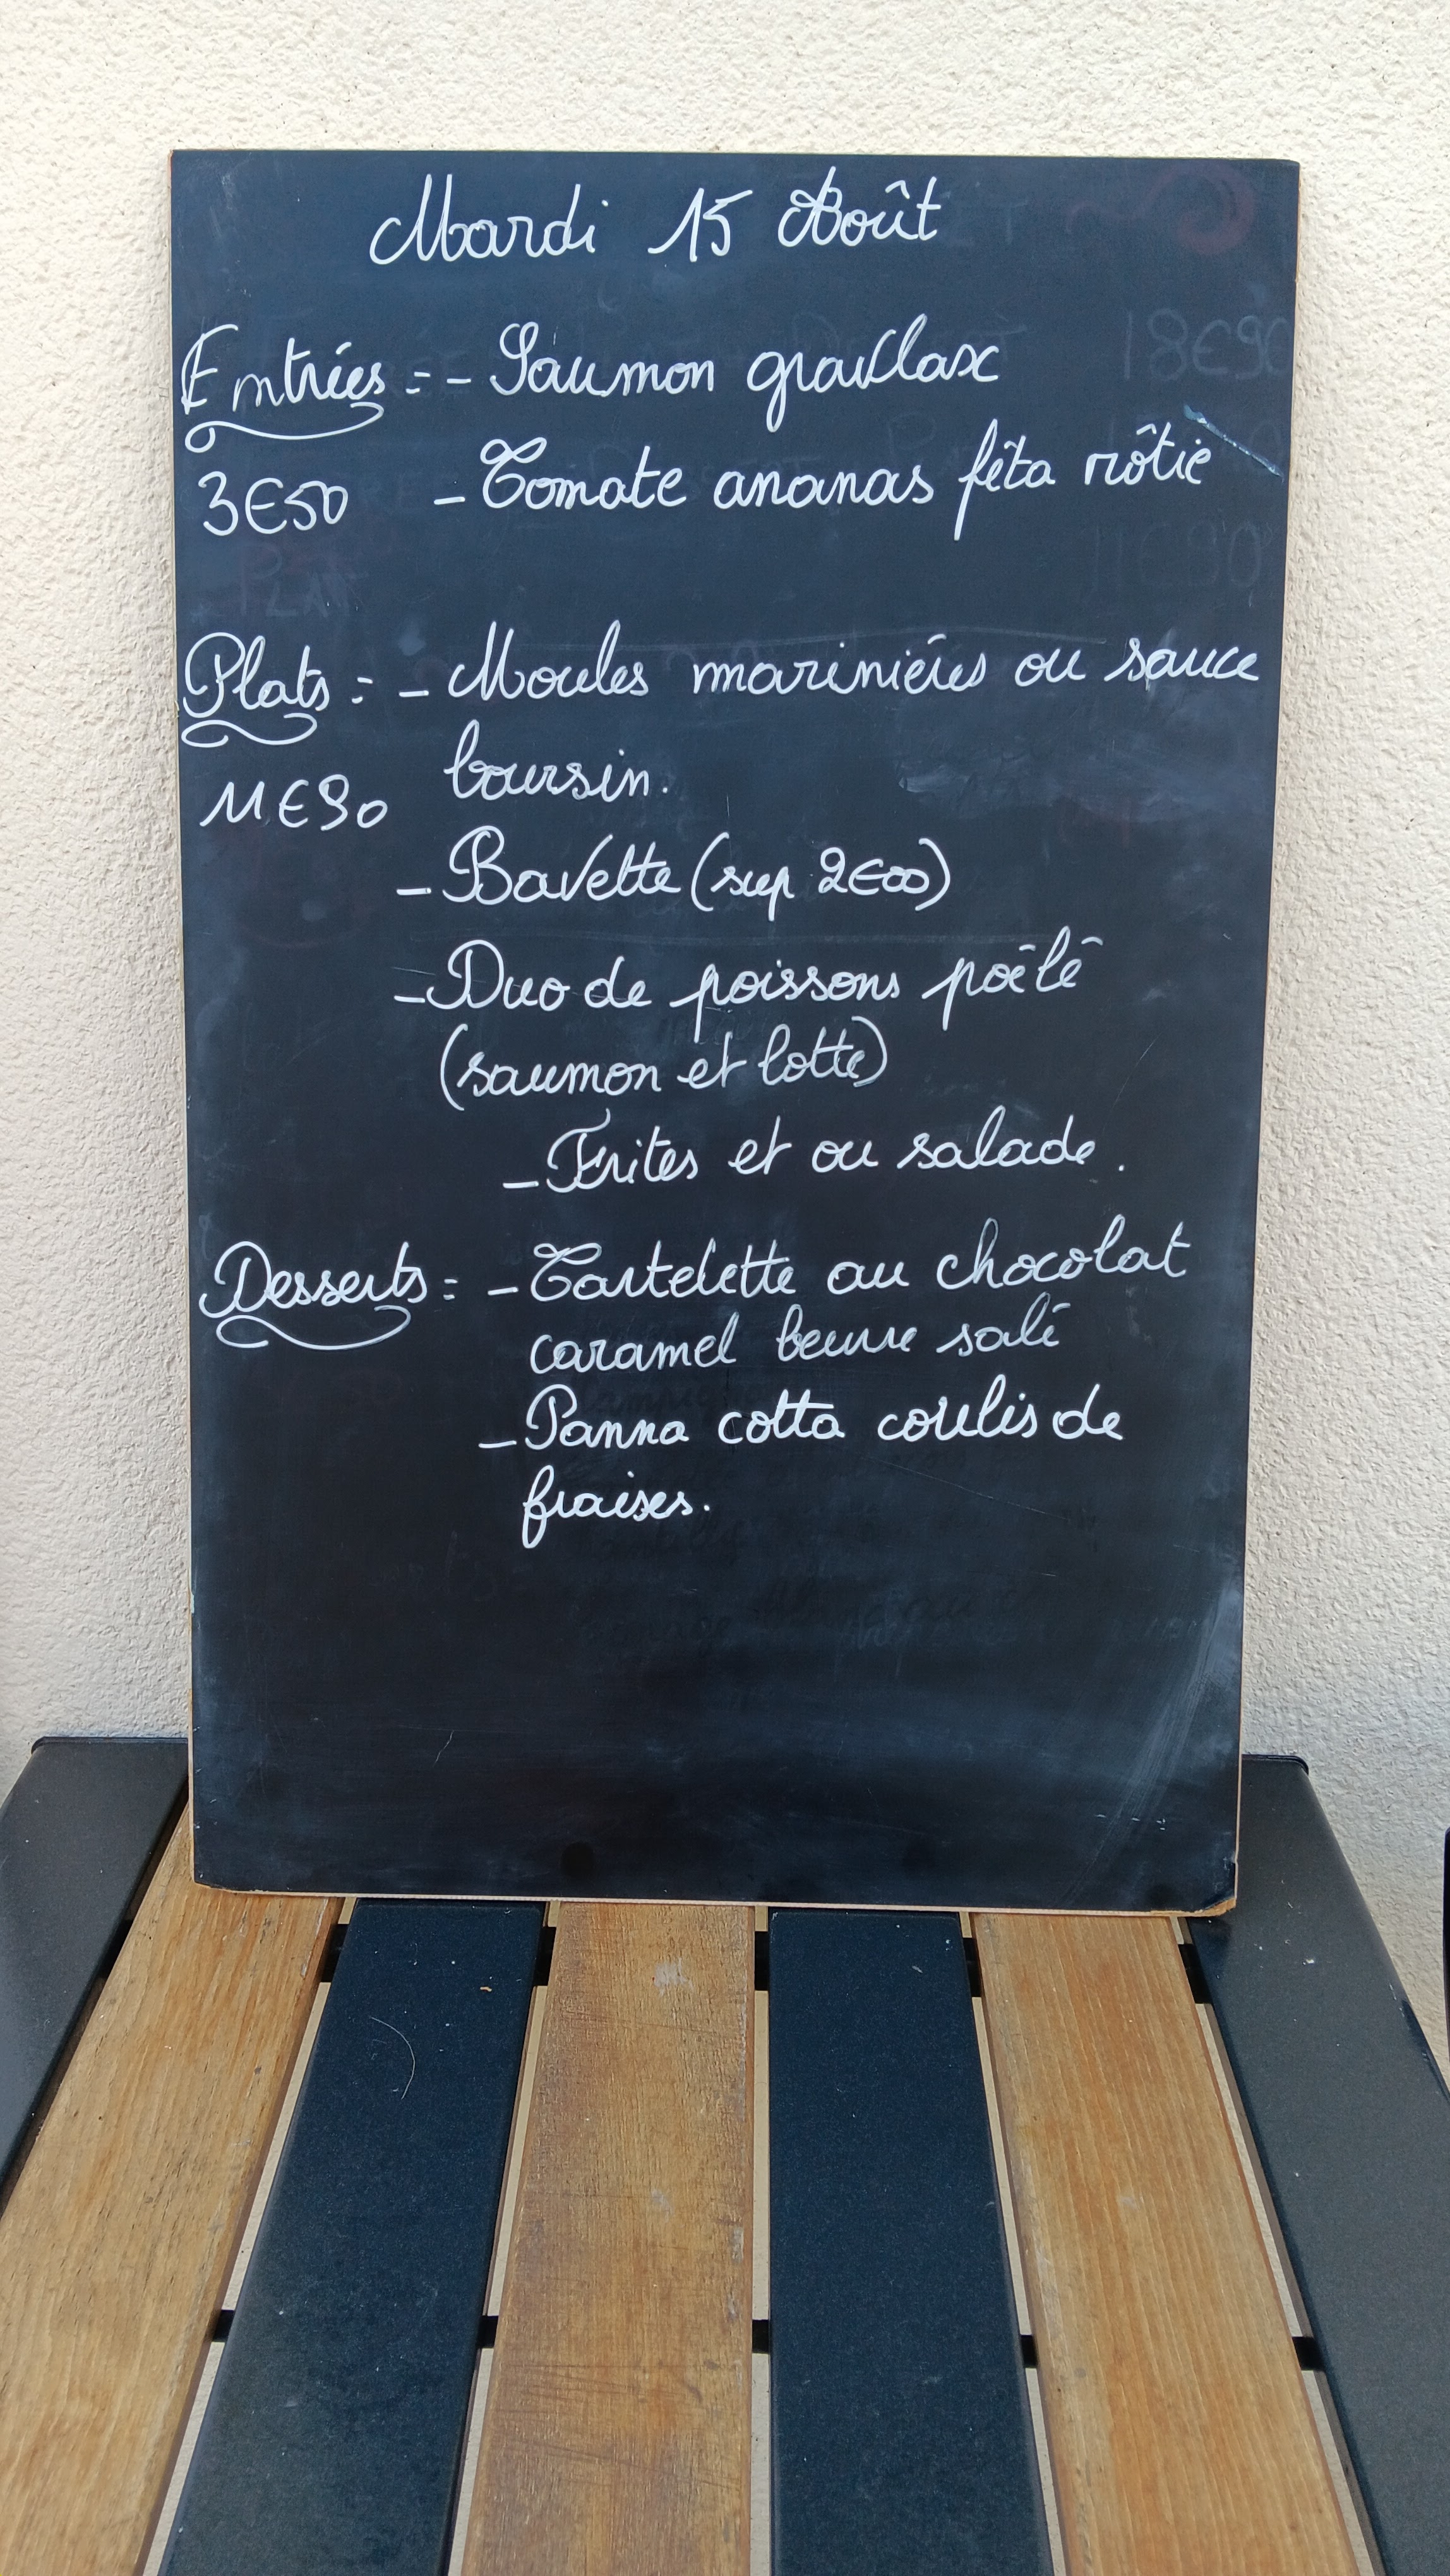 Mardi 15 Août
Entrées : - Saumon gravlax
3€50 - Tomate ananas fêta rôtie
Plats : - Moules marinières ou sauce
boursin.
11€90
- Bavette (sup 2€00)
- Duo de poissons poêlé
(saumon et lotte)
- Frites et ou salade.
Desserts : - Tartelette au chocolat
caramel beurre salé
- Panna cotta coulis de
fraises.